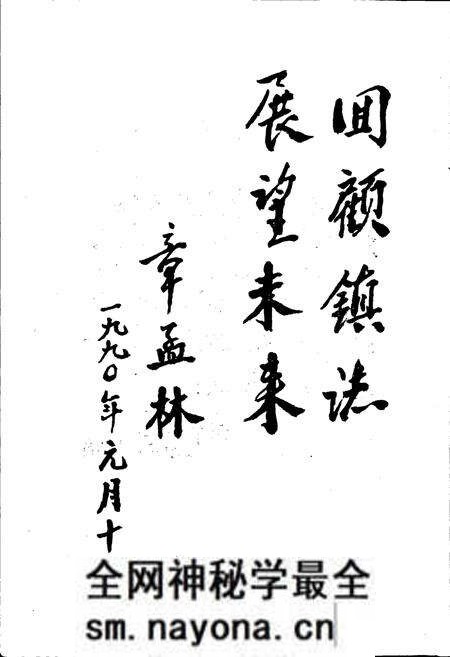 回顧鎮誌
展望未来
章孟林
一九九〇年元月十
全网神秘学最全
sm.nayona.cn